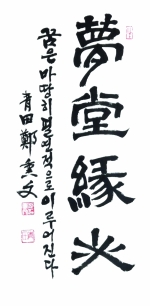 夢堂緣必
꿈은 마땅히 필연적으로 이루어진다
青田 鄭 文